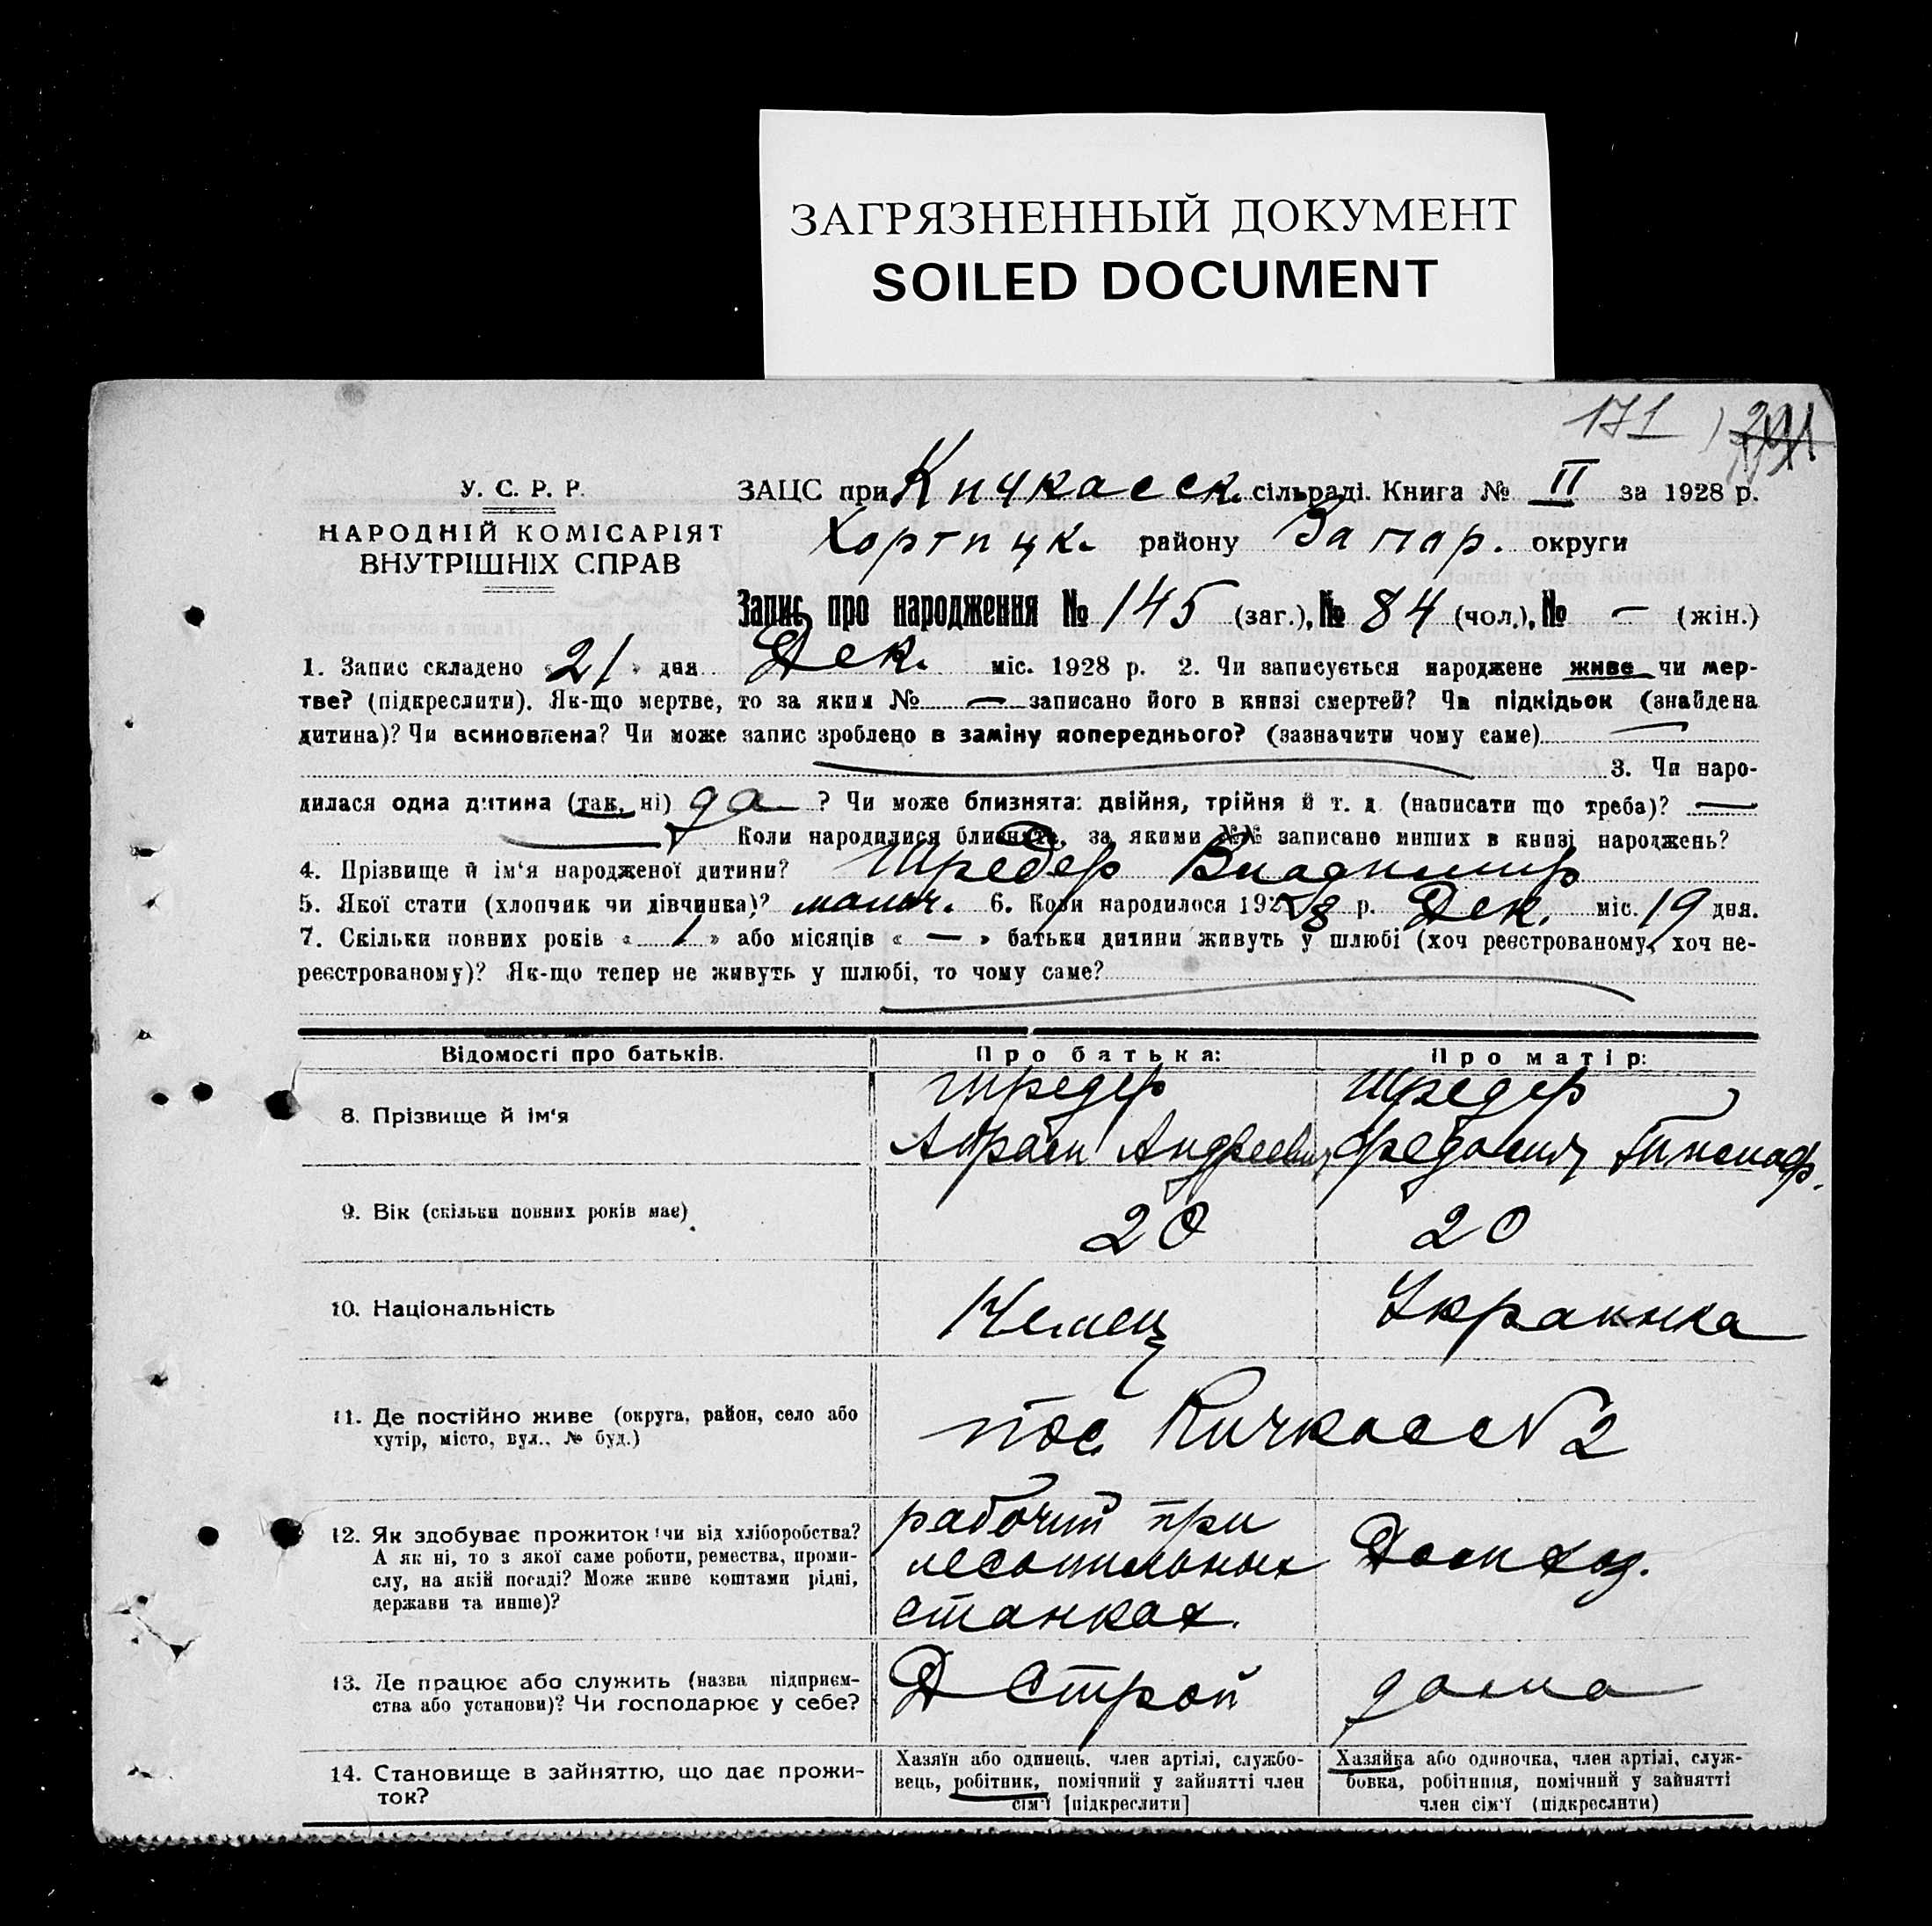 ЗАГРЯЗНЕННЫЙ ДОКУМЕНТ
SOILED DOCUMENT
171
У. С. Р. Р.
НАРОДНІЙ КОМІСАРІЯТ
ВНУТРІШНІХ СПРАВ
ЗАЦС при Кичкасск. сільраді. Книга № II за 1928 р.
Хортицк. району Запор. округи
Запис про народження № 145 (заг.), № 84 (чол.), № — (жін.)
1. Запис складено «21» дня Дек. міс. 1928 р. 2. Чи записується народжене живе чи мер-
тве? (підкреслити). Як-що мертве, то за яким № — записано його в книзі смертей? Чи підкідьок (знайдена
дитина)? Чи всиновлена? Чи може запис зроблено в заміну попереднього? (зазначити чому саме) —
3. Чи наро-
дилася одна дитина (так, ні) да ? Чи може близнята: двійня, трійня й т. д. (написати що треба)? —
Коли народилися близнята, за якими №№ записано инших в книзі народжень?
4. Прізвище й ім'я народженої дитини? Шредер Владимир
5. Якої стати (хлопчик чи дівчинка)? мальч. 6. Коли народилося 1928 р. Дек. міс. 19 дня.
7. Скільки повних років «1» або місяців «—» батьки дитини живуть у шлюбі (хоч реєстрованому, хоч не-
реєстрованому)? Як-що тепер не живуть у шлюбі, то чому саме?
Відомості про батьків. Про батька: Про матір:
8. Прізвище й ім'я
Шредер Шредер
Абрам Андреевич
9. Вік (скільки повних років має) 20 20
10. Національність Немец Украинка
11. Де постійно живе (округа, район, село або
хутір, місто, вул., № буд.)
пос Кичкасс N 2
12. Як здобуває прожиток: чи від хліборобства?
А як ні, то з якої саме роботи, ремества, проми-
слу, на якій посаді? Може живе коштами рідні,
держави та инше)?
рабочий при
лесопильных
станках.
Домхоз.
13. Де працює або служить (назва підприєм-
ства або установи)? Чи господарює у себе?
Д Строй дома
14. Становище в зайняттю, що дає прожи-
ток?
Хазяїн або одинець, член артілі, службо-
вець, робітник, помічний у зайнятті член
сім'ї [підкреслити]
Хазяйка або одиночка, член артілі, служ-
бовка, робітниця, помічний у зайнятті
член сім'ї (підкреслити)